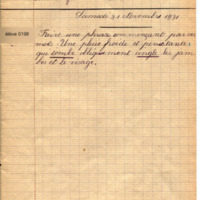 Samedi 21 Novembre 1931
Élève 0198
Faire une phrase commençant par un
mot. Une pluie froide et pénétrante
qui tombe obliquement cingle les jam
bes et le visage.